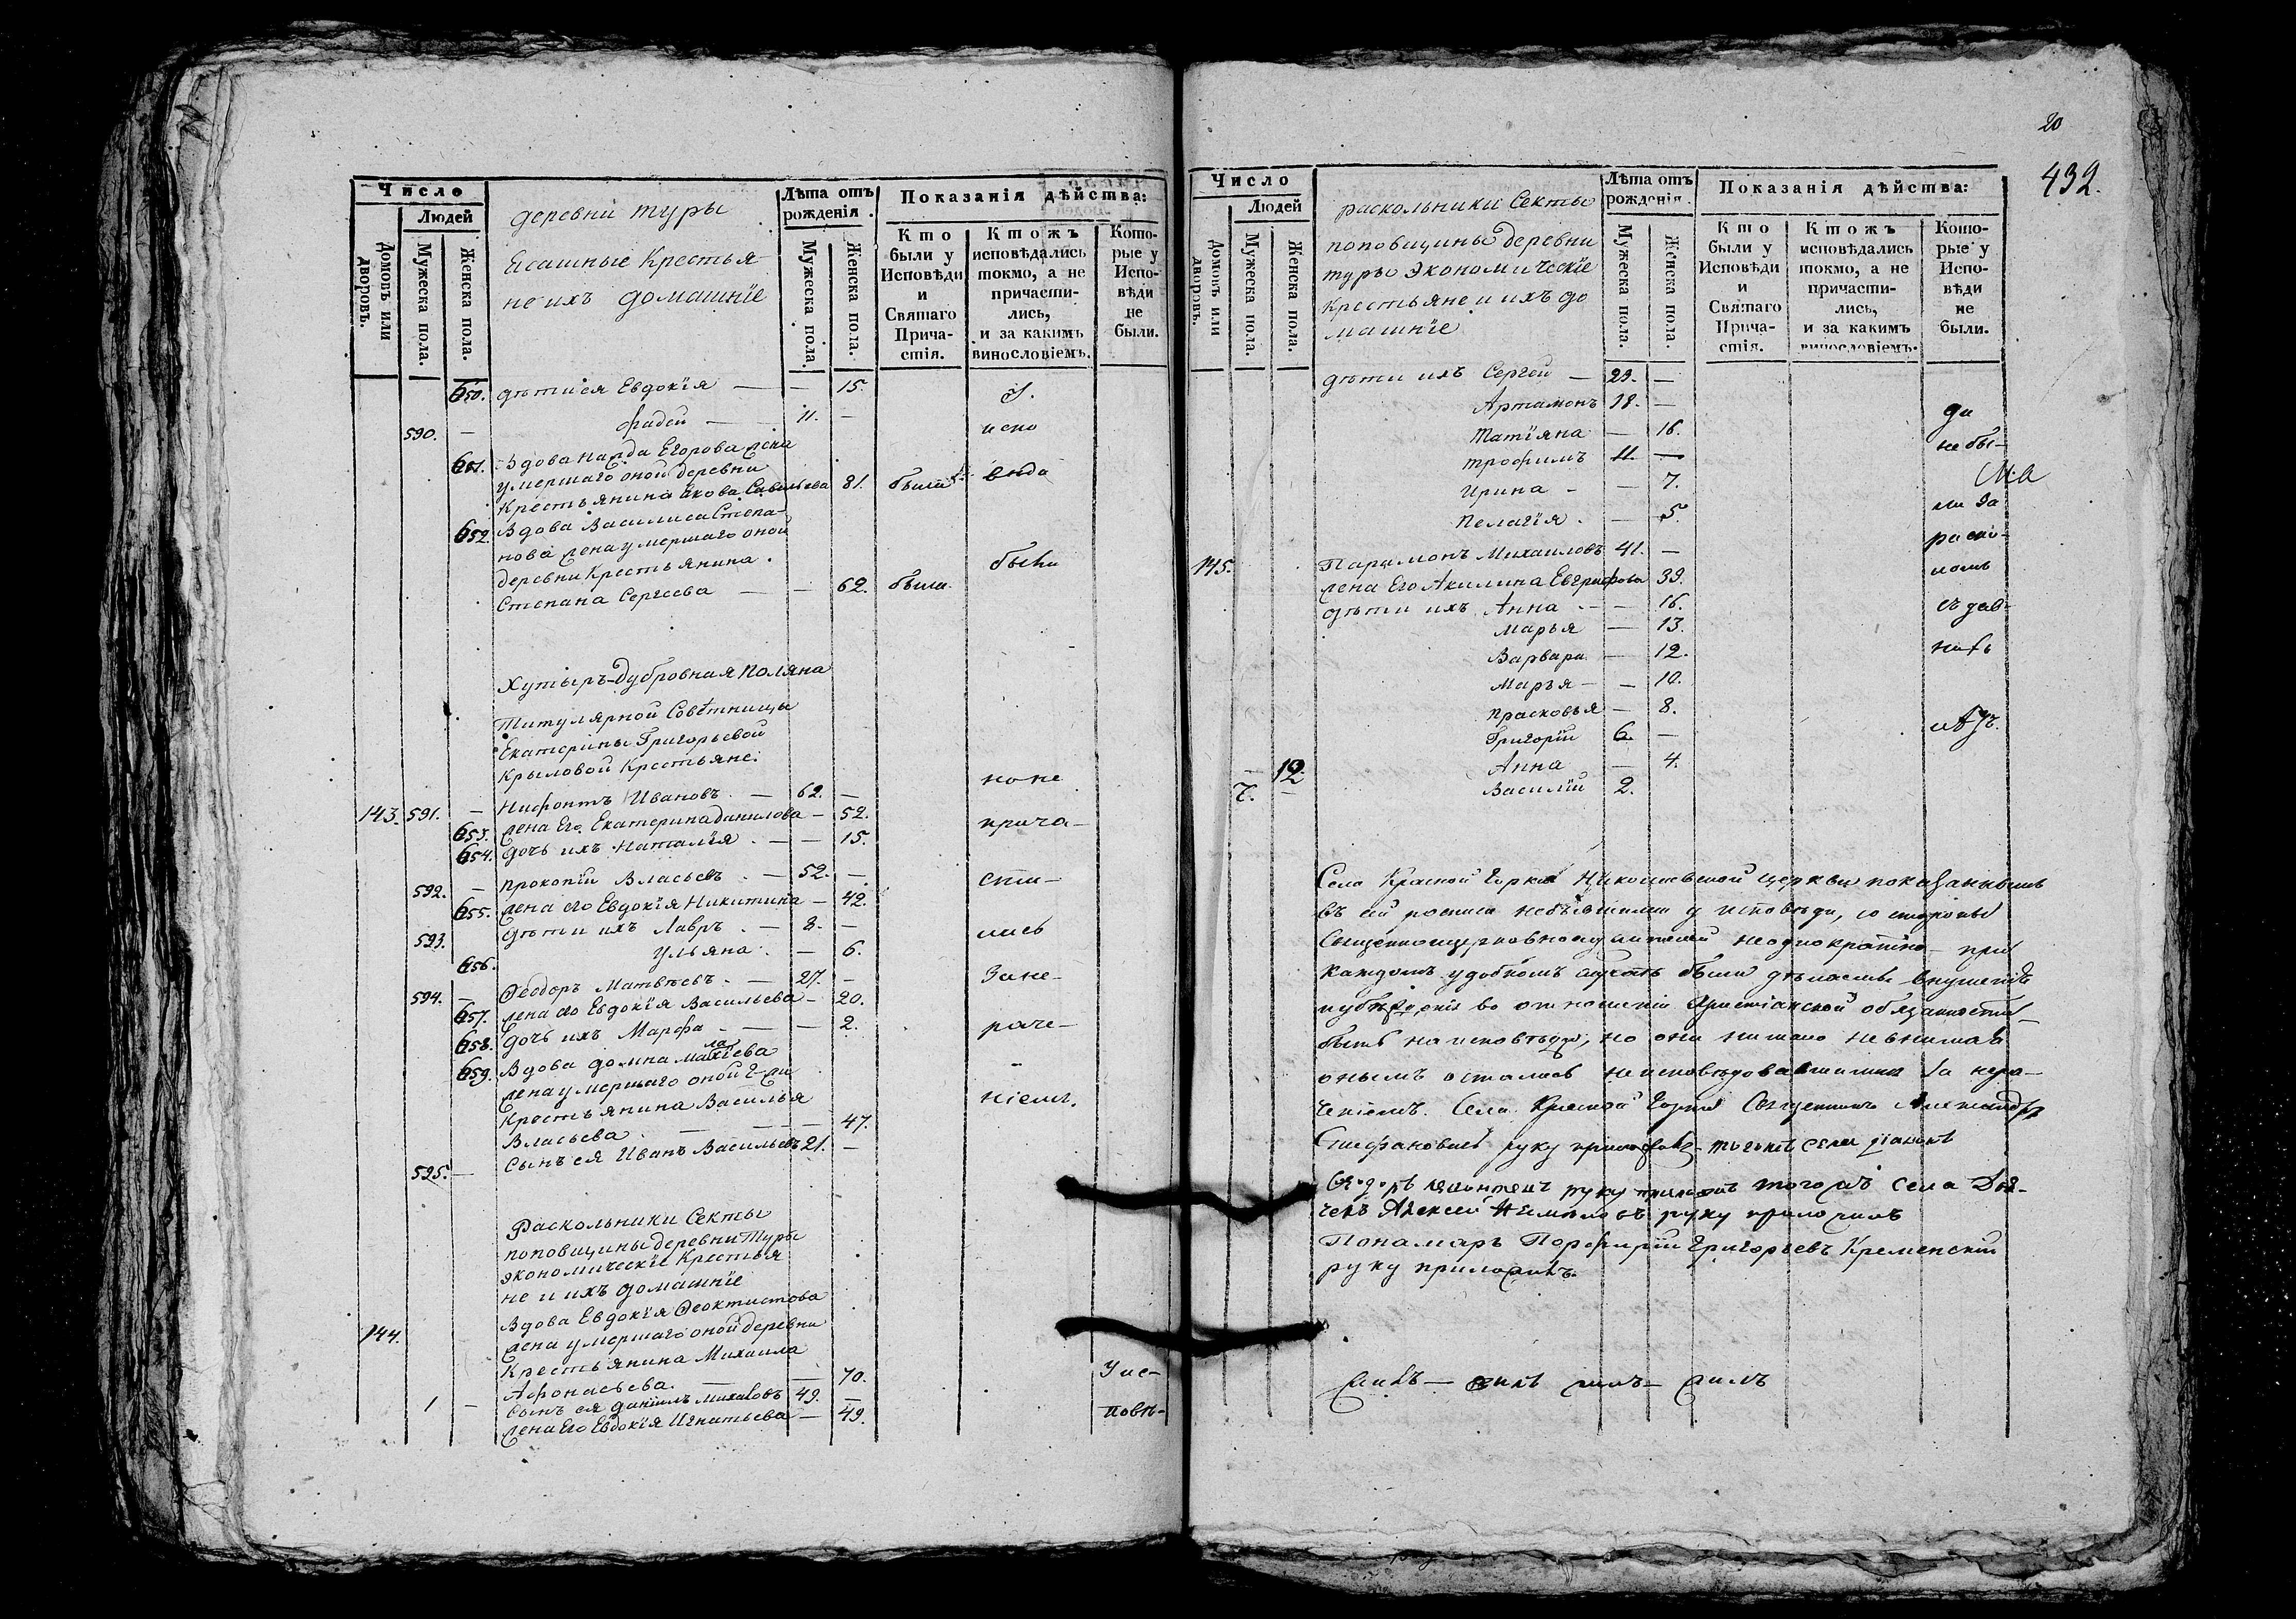 Число
Людей
Домовъ или дворовъ.
Мужеска пола.
Женска пола.
деревни туры
Ясашные Крестья
не ихъ домашнїе
Лѣта отъ рожденія.
Мужеска пола.
Женска пола.
Показанія дѣйства:
Кто были у Исповѣди и Святаго Причастія.
Ктожъ исповѣдались токмо, а не причастились, и за какимъ винословіемъ.
Которые у Исповѣди не были.
650. дѣти ея Евдокїя — — 15.
590. — фадей — 11. — испо
651. Вдова Егорова жена
умершаго оной деревни
Крестьянина Якова Савельева 81. были
652. Вдова Василиса Степа-
нова жена умершаго оной
деревни Крестьянина
Степана Сергеева — — 62. были
Хутыръ-Дубровная Поляна
Титулярной Советницы
Екатерины Григорьевой
Крыловой Крестьяне:
но не
143. 591. — Нифонтъ Ивановъ — 62. —
653. жена Его Екатерина данилова — 52. прича-
654. дочь ихъ Наталїя — — 15.
592. — прокопїй Власьевъ — 52. — сти-
655. жена его Евдокїя Никитина — 42.
593. дѣти ихъ Лавръ — 8. — лись
656. Ульяна — 6.
594. — Феодоръ Матвѣевъ — 27. — Зане-
657. жена его Евдокїя Васильева — 20.
658. дочь ихъ Марфа — — 2. раче-
659. Вдова домна
жена умершаго оной
Крестьянина Василья нїемъ.
Власьева — — — 47.
595. — Сынъ ея Иванъ Васильевъ 21. —
Раскольники Секты
поповщины деревни Туры
экономическїе Крестья
не и ихъ домашнїе
144. Вдова Евдокїя Феоктистова
жена умершаго оной деревни
Крестьянина Михаила
Афонасьева — — 70. У ис-
1 — Сынъ ея данїилъ Михаловъ 49. —
жена Его Евдокїя Игнатьева — 49. повѣ-
20
432.
Число
Людей
Домовъ или дворовъ.
Мужеска пола.
Женска пола.
раскольники Секты
поповщины деревни
туры экономическїе
Крестьяне и ихъ до
машнїе
Лѣта отъ рожденія.
Мужеска пола.
Женска пола.
Показанія дѣйства:
Кто были у Исповѣди и Святаго Причастія.
Ктожъ исповѣдались токмо, а не причастились, и за какимъ винословіемъ.
Которые у Исповѣди не были.
дѣти ихъ Сергей — 23. —
Артамонъ 18. — ди
Татїяна — 16. не бы-
трофимъ 11. —
Ирина — — 7.
Пелагїя — 5. ли За
145. Парамонъ Михаиловъ 41. — раско-
жена Его Акилина Евграфова 39.
дѣти ихъ Анна — — 16.
Марья — 13.
Варвара — 12.
Марья — — 10.
прасковья — 8.
Григорїй 6. —
— 12. Анна — 4.
7. — Василїй 2.
Села Красной Горки Николаевской церкви показаннымъ
въ сей росписи небывшимъ у исповѣди, со стороны
Священноцерковнослужителей неоднократно при
каждомъ удобномъ случаѣ были дѣланы внушенїя
и убѣжденїя во отношенїи Христїанской обязанности
быть на исповѣди, но они ни мало не внимая
онымъ остались неисповѣдовавшимися За нера-
ченїемъ. Села Красной Горки Священникъ Александръ
Стефановъ руку приложилъ
руку приложилъ тогожъ села Дья-
чекъ Алексей руку приложилъ
Понамарь Порфирїй Григорьевъ Кременскїй
руку приложилъ.